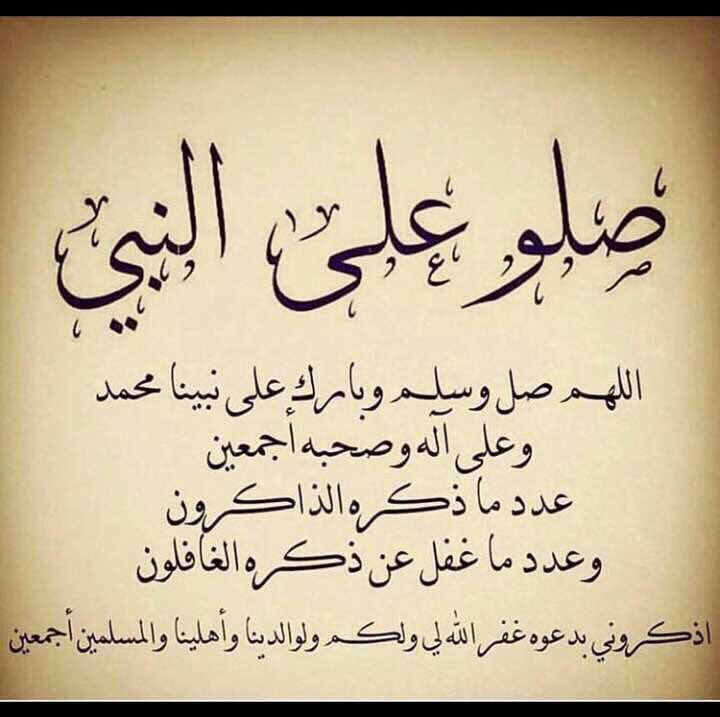 صلو على النبي
اللهم صل وسلم وبارك على نبينا محمد
وعلى آله وصحبه أجمعين
عدد ما ذكره الذاكرون
وعدد ما غفل عن ذكره الغافلون
اذكروني بدعوه غفر الله لي ولكم ولوالدينا وأهلينا والمسلمين أجمعين